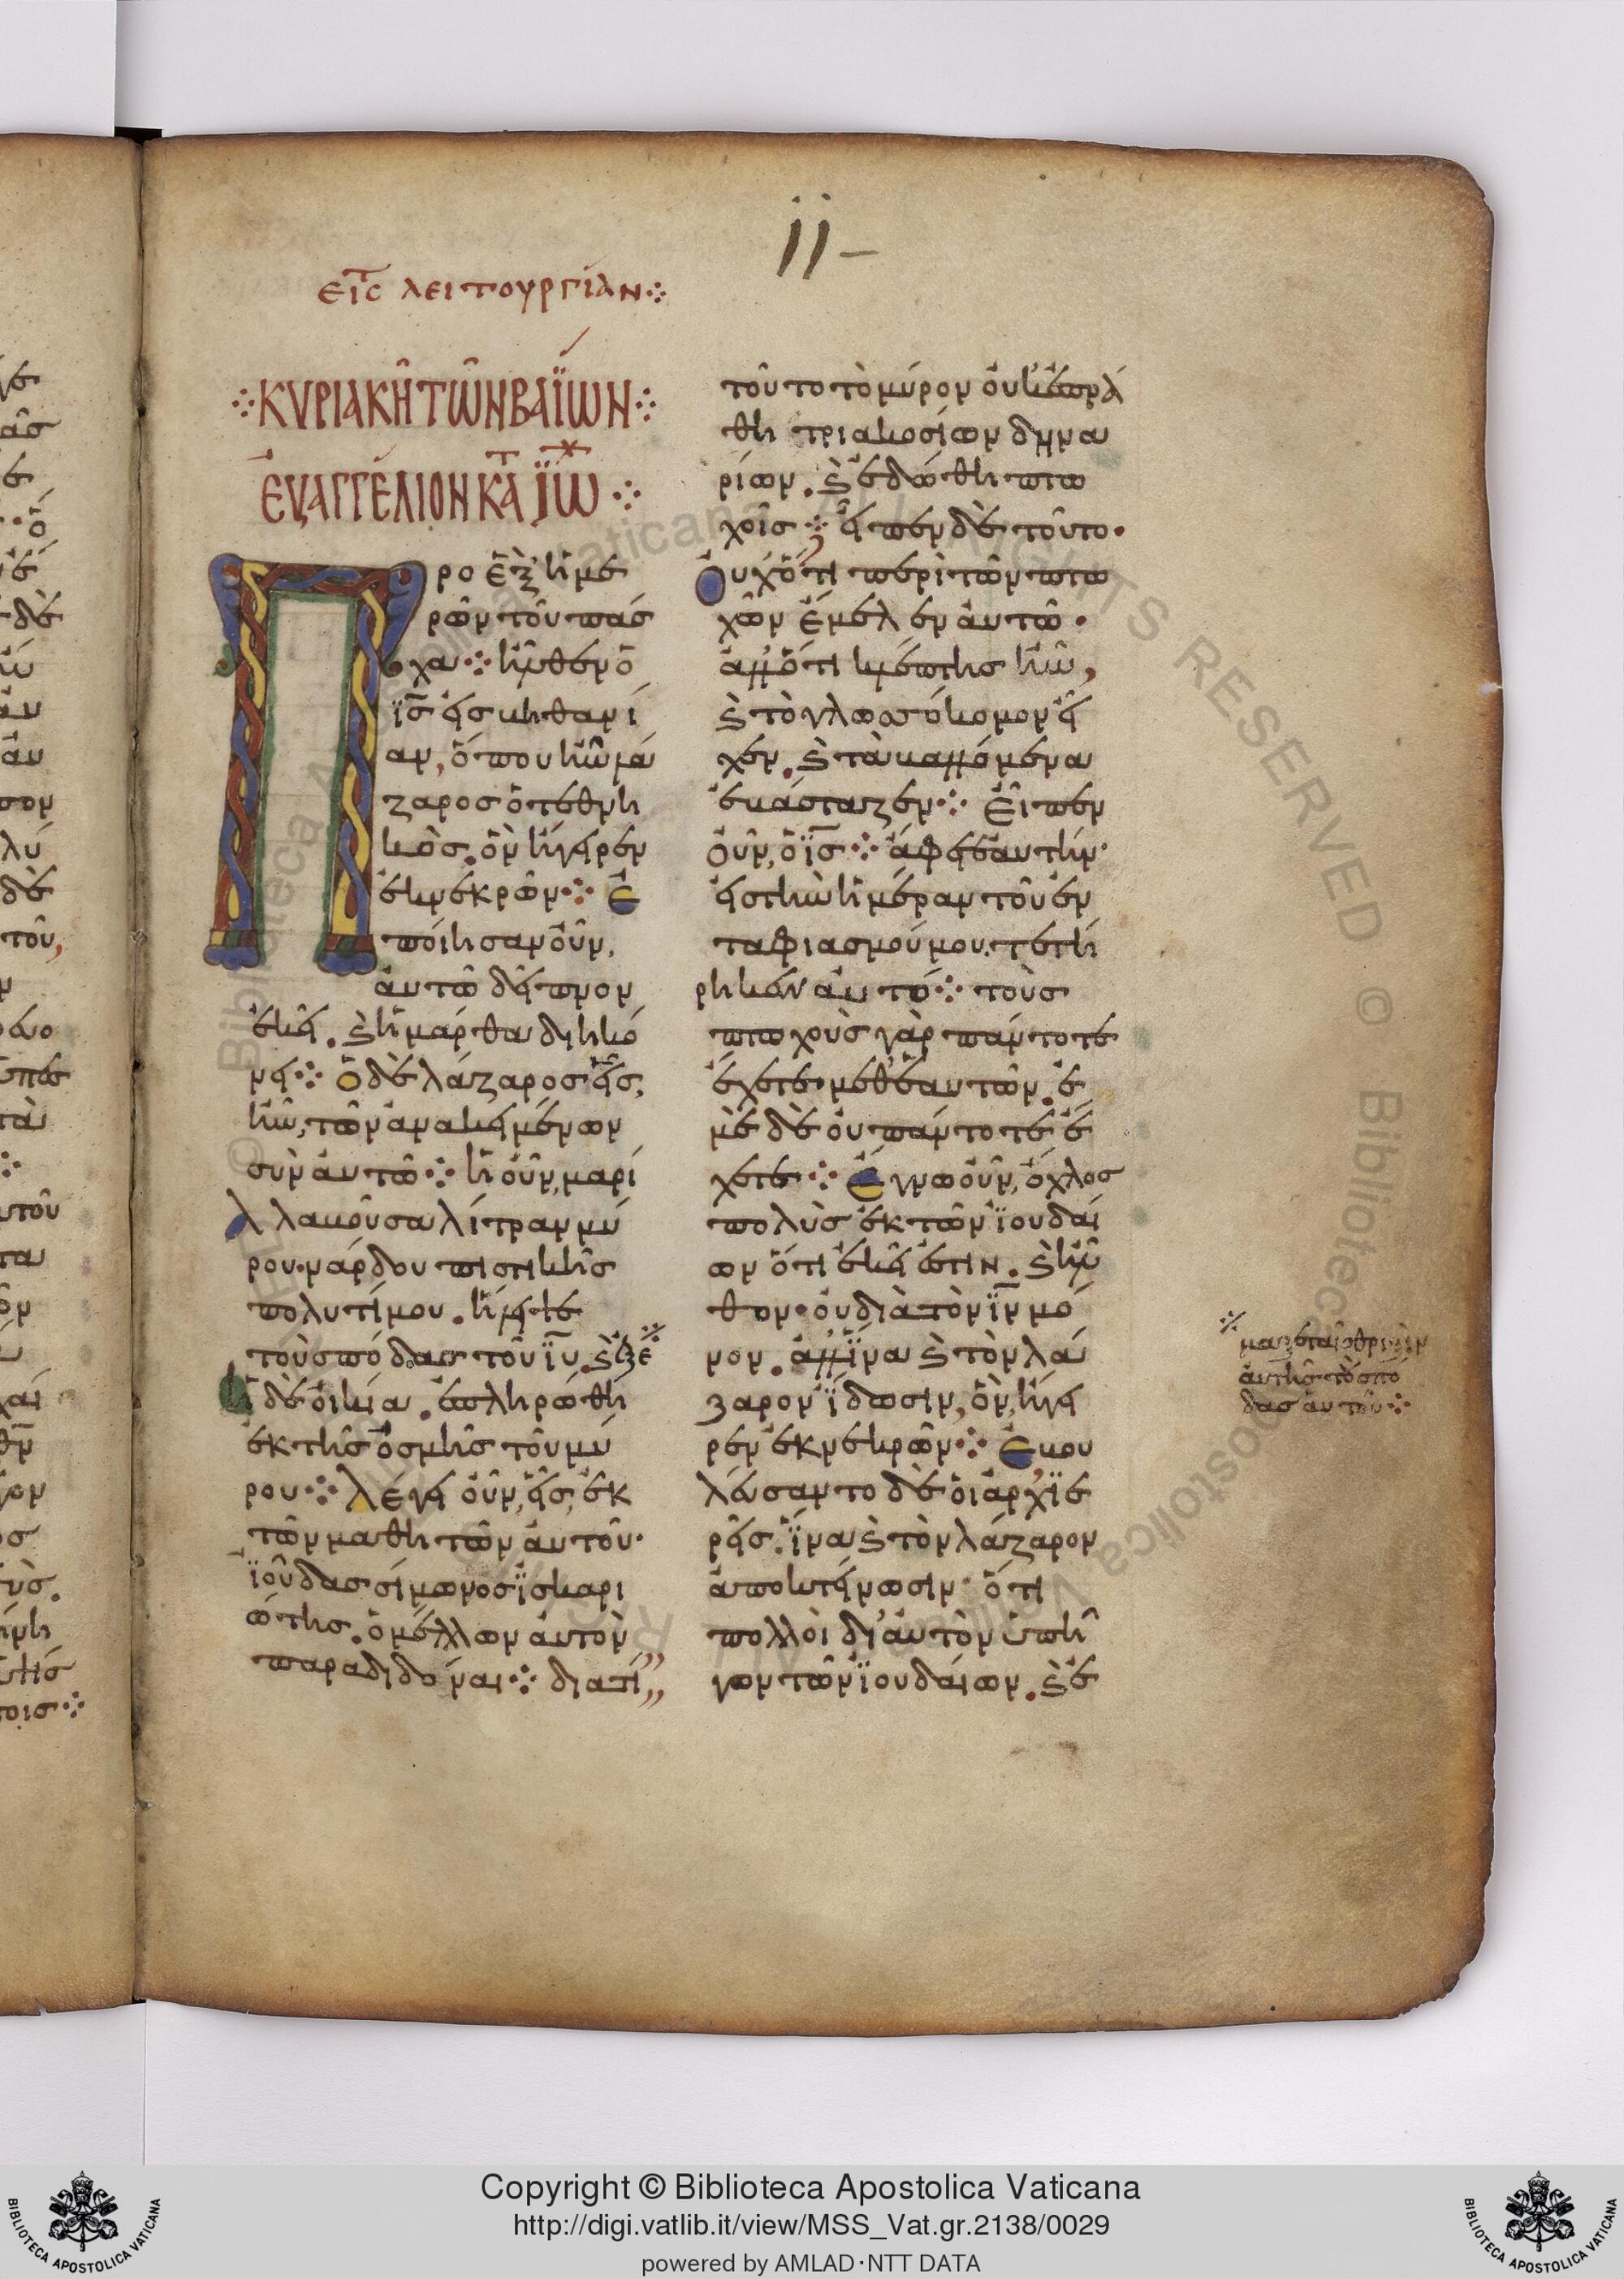 ii-
εἰς λειτουργίαν
ΚΥΡΙΑΚΗ ΤΩΝ ΒΑΪΩΝ
ΕΥΑΓΓΕΛΙΟΝ ΚΑΤ ΙΩ
Προ ἓξ ἡμε
ρῶν τοῦ πάσ
χα ἦλθεν ὁ
ἰς εἰς βηθανί
αν, ὅπου ἦν λά
ζαρος ὁ τεθνη
κὼς. ὃν ἤγειρεν
ἐκ νεκρῶν Ἐ
ποίησαν οὖν,
αὐτῶ δεῖπνον
ἐκεῖ. κ ἡ μάρθα διηκό
νει ὁ δὲ λάζαρος εἷς,
ἦν, τῶν ἀνακειμένων
σὺν αὐτῶ ἡ οὖν, μαρί
α λαβοῦσα λίτραν μύ
ρου νάρδου πιστικῆς
πολυτίμου. ἤλειψε
τοὺς πόδας τοῦ ιυ. κ ἐξέ
ἡ δὲ οἰκία. ἐπληρώθη
ἐκ τῆς ὀσμῆς τοῦ μύ
ρου λέγει οὖν, εἷς, ἐκ
τῶν μαθητῶν αὐτοῦ
ἰούδας σίμωνος ἰσκαρι
ώτης. ὁ μέλλων αὐτὸν
παραδιδόναι διατί
τοῦτο τὸ μύρον οὐκ ἐπρά
θη τριακοσίων δηνα
ρίων. κ ἐδώθη πτω
χοῖς εἶπεν δὲ τοῦτο
Οὐχ ὅτι περὶ τῶν πτω
χῶν ἔμελεν αὐτῶ
ἀλλ ὅτι κλέπτης ἦν,
κ τὸ γλωσσόκομον εἶ
χεν. κ τὰ βαλλόμενα
ἐβάσταζεν Εἶπεν
οὖν, ὁ ις ἄφες αὐτὴν
εἰς τὴν ἡμέραν τοῦ ἐν
ταφιασμού μου. τετή
ρηκεν αὐτό τοὺς
πτωχοὺς γὰρ πάντοτε
ἔχετε μεθ ἑαυτῶν. ἐ
μὲ δὲ οὐ πάντοτε ἔ
χετε Ἔγνω οὖν, ὄχλος
πολὺς ἐκ τῶν ἰουδαί
ων ὅτι ἐκεῖ ἐστιν. κ ἦλ
θον οὐ διὰ τὸν ιν μό
νον. ἀλλ ἵνα κ τὸν λά
ζαρον ἴδωσιν, ὃν, ἤγει
ρεν ἐκ νεκρῶν Ἐβου
λεύσαντο δὲ οἱ ἀρχιε
ρεῖς. ἵνα κ τὸν λάζαρον
ἀποκτείνωσιν ὅτι
πολλοὶ δι αὐτὸν ὑπῆ
γον τῶν ἰουδαίων. κ ἐ
μαξε ταῖς θριξὶν
αὐτῆς τοὺς πό
δας αὐτοῦ
Copyright © Biblioteca Apostolica Vaticana
http://digi.vatlib.it/view/MSS_Vat.gr.2138/0029
powered by AMLAD·NTT DATA
BIBLIOTECA APOSTOLICA VATICANA
BIBLIOTECA APOSTOLICA VATICANA